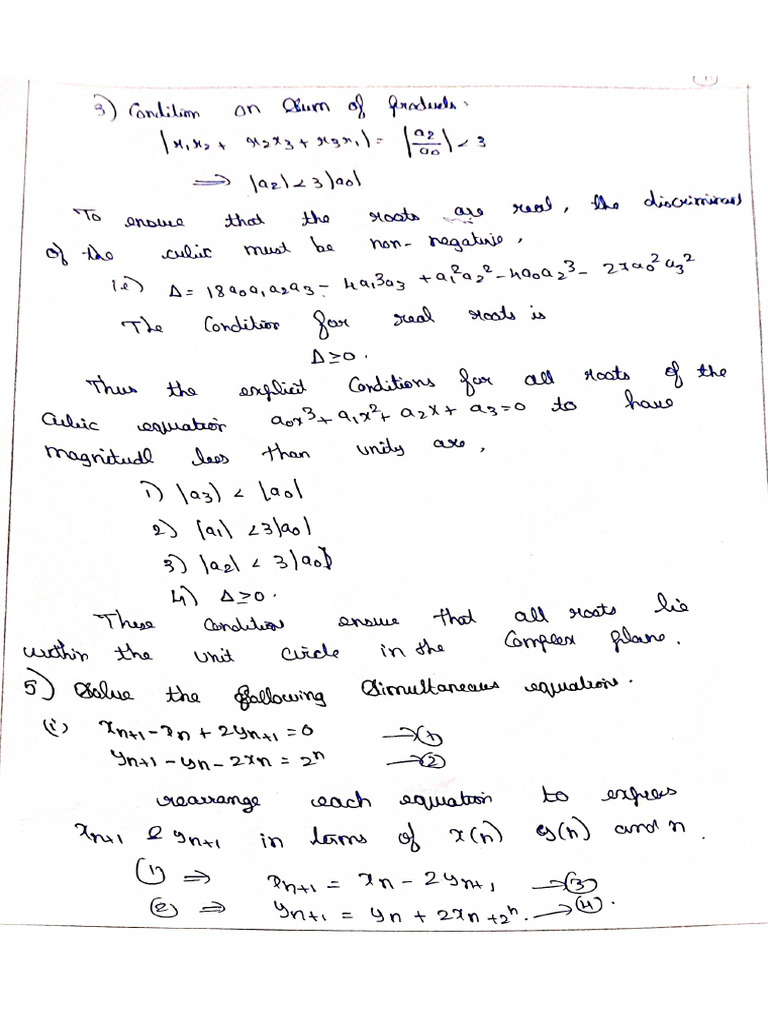 3) Condition on Sum of products.
|x₁x₂ + x₂x₃ + x₃x₁| = |a₂/a₀| < 3
⟹ |a₂| < 3|a₀|
To ensure that the roots are real, the discriminant
of the cubic must be non-negative,
i.e) Δ = 18a₀a₁a₂a₃ - 4a₁³a₃ + a₁²a₂² - 4a₀a₂³ - 27a₀²a₃²
The Condition for real roots is
Δ ≥ 0.
Thus the explicit Conditions for all roots of the
Cubic equation a₀x³ + a₁x² + a₂x + a₃ = 0 to have
magnitude less than unity are,
1) |a₃| < |a₀|
2) |a₁| < 3|a₀|
3) |a₂| < 3|a₀|
4) Δ ≥ 0.
These Condition ensure that all roots lie
within the unit circle in the Complex plane.
5) Solve the following Simultaneous equation.
(i) xₙ₊₁ - xₙ + 2yₙ₊₁ = 0 → (1)
yₙ₊₁ - yₙ - 2xₙ = 2ⁿ → (2)
rearrange each equation to express
xₙ₊₁ & yₙ₊₁ in terms of x(n) y(n) and n.
(1) ⟹ xₙ₊₁ = xₙ - 2yₙ₊₁ → (3)
(2) ⟹ yₙ₊₁ = yₙ + 2xₙ + 2ⁿ. → (4).